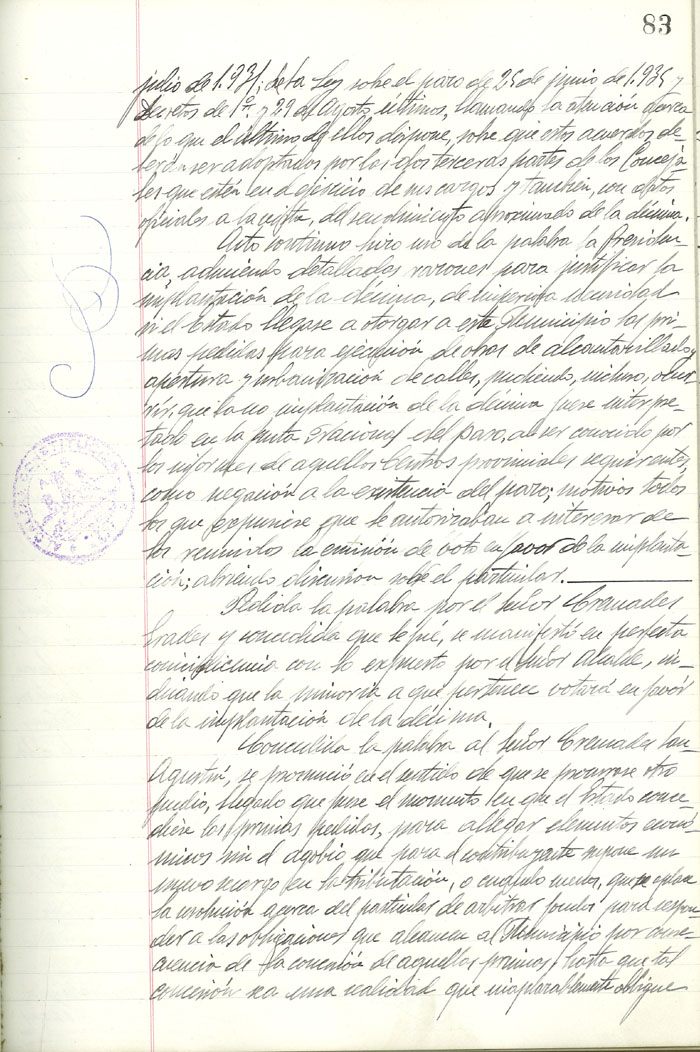 83
julio de 1.931; de la Ley sobre el paro de 25 de junio de 1.935 y
Decretos de 1º y 29 de Agosto últimos, llamando la atención acerca
de lo que el último de ellos dispone, sobre que estos acuerdos de
berán ser adoptados por las dos terceras partes de los Conceja
les que estén en el ejercicio de sus cargos y también, con datos
oficiales a la vista, del rendimiento aproximado de la décima.
Acto continuo hizo uso de la palabra la Presiden-
cia, aduciendo detalladas razones para justificar la
implantación de la décima, de imperiosa necesidad
si el Estado llegase a otorgar a este Municipio las pri-
mas pedidas para ejecución de obras de alcantarillado,
apertura y urbanización de calles, pudiendo, incluso, ocu
rrir, que la no implantación de la décima fuese interpre-
tado en la Junta Nacional del paro, al ser conocido por
los informes de aquellos Centros provinciales
como negación a la existencia del paro; motivos todos
los que expusiese que le autorizaban a interesar de
los reunidos la emisión de voto en favor de la implanta-
ción; abriendo discusión sobre el particular.
Pedida la palabra por el Señor Cremades
Erades y concedida que le fué, se manifestó en perfecta
con lo expuesto por el Señor alcalde, in-
dicando que la minoría a que pertenece votará en favor
de la implantación de la décima.
Concedida la palabra al Señor Cremades San-
Agustín, se pronunció en el sentido de que se procurase otro
medio, llegado que fuese el momento en que el Estado conce
diese las primas pedidas, para allegar elementos econó
micos sin el agobio que para el contribuyente supone un
nuevo recargo en la tributación, o cuando menos, que se aplace
la resolución acerca del particular de arbitrar fondos para respon-
der a las obligaciones que alcancen al Municipio por
de la concesión de aquellas primas, hasta que tal
concesión sea una realidad que inaplazablemente obligue